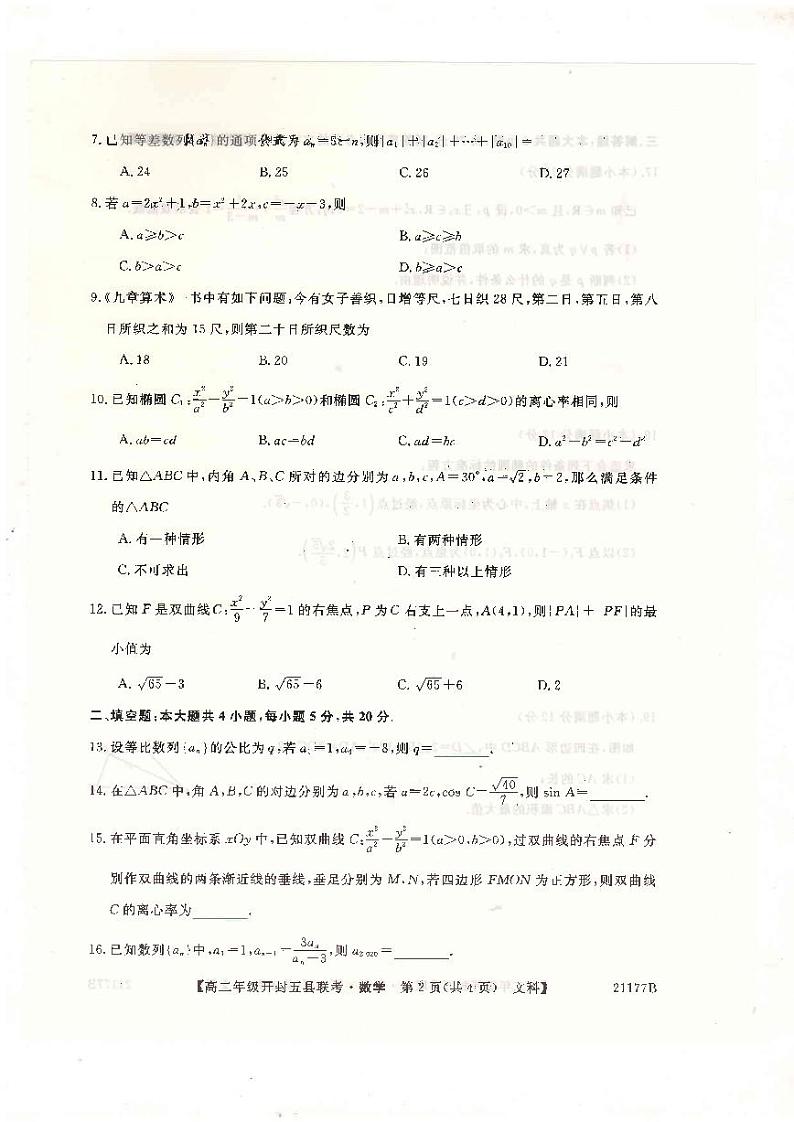 7.已知等差数列{aₙ}的通项公式为 aₙ=5-n,则|a₁|+|a₂|+…+|a₁₀|=
A.24 B.25 C.26 D.27
8.若 a=2x²+1,b=x²+2x,c=-x-3,则
A.a⩾b>c B.a⩾c⩾b
C.b>a>c D.b⩾a>c
9.《九章算术》一书中有如下问题:今有女子善织,日增等尺,七日织 28 尺,第二日、第五日、第八
日所织之和为 15 尺,则第二十日所织尺数为
A.18 B.20 C.19 D.21
10.已知椭圆 C₁:x²/a²+y²/b²=1(a>b>0)和椭圆 C₂:x²/c²+y²/d²=1(c>d>0)的离心率相同,则
A.ab=cd B.ac=bd C.ad=bc D.a²-b²=c²-d²
11.已知△ABC 中,内角 A、B、C 所对的边分别为 a,b,c,A=30°,a=√2,b=2,那么满足条件
的△ABC
A.有一种情形 B.有两种情形
C.不可求出 D.有三种以上情形
12.已知 F 是双曲线 C:x²/9-y²/7=1 的右焦点,P 为 C 右支上一点,A(4,1),则|PA|+|PF|的最
小值为
A.√65-3 B.√65-6 C.√65+6 D.2
二、填空题:本大题共 4 小题,每小题 5 分,共 20 分.
13.设等比数列{aₙ}的公比为 q,若 a₁=1,a₄=-8,则 q=______.
14.在△ABC 中,角 A,B,C 的对边分别为 a,b,c,若 a=2c,cos C=√40/7,则 sin A=______.
15.在平面直角坐标系 xOy 中,已知双曲线 C:x²/a²-y²/b²=1(a>0,b>0),过双曲线的右焦点 F 分
别作双曲线的两条渐近线的垂线,垂足分别为 M、N,若四边形 FMON 为正方形,则双曲线
C 的离心率为______.
16.已知数列{aₙ}中,a₁=1,aₙ₊₁=3aₙ/(aₙ-3),则 a₂₀₂₀=______.
【高二年级开封五县联考·数学 第 2 页(共 4 页) 文科】 21177B